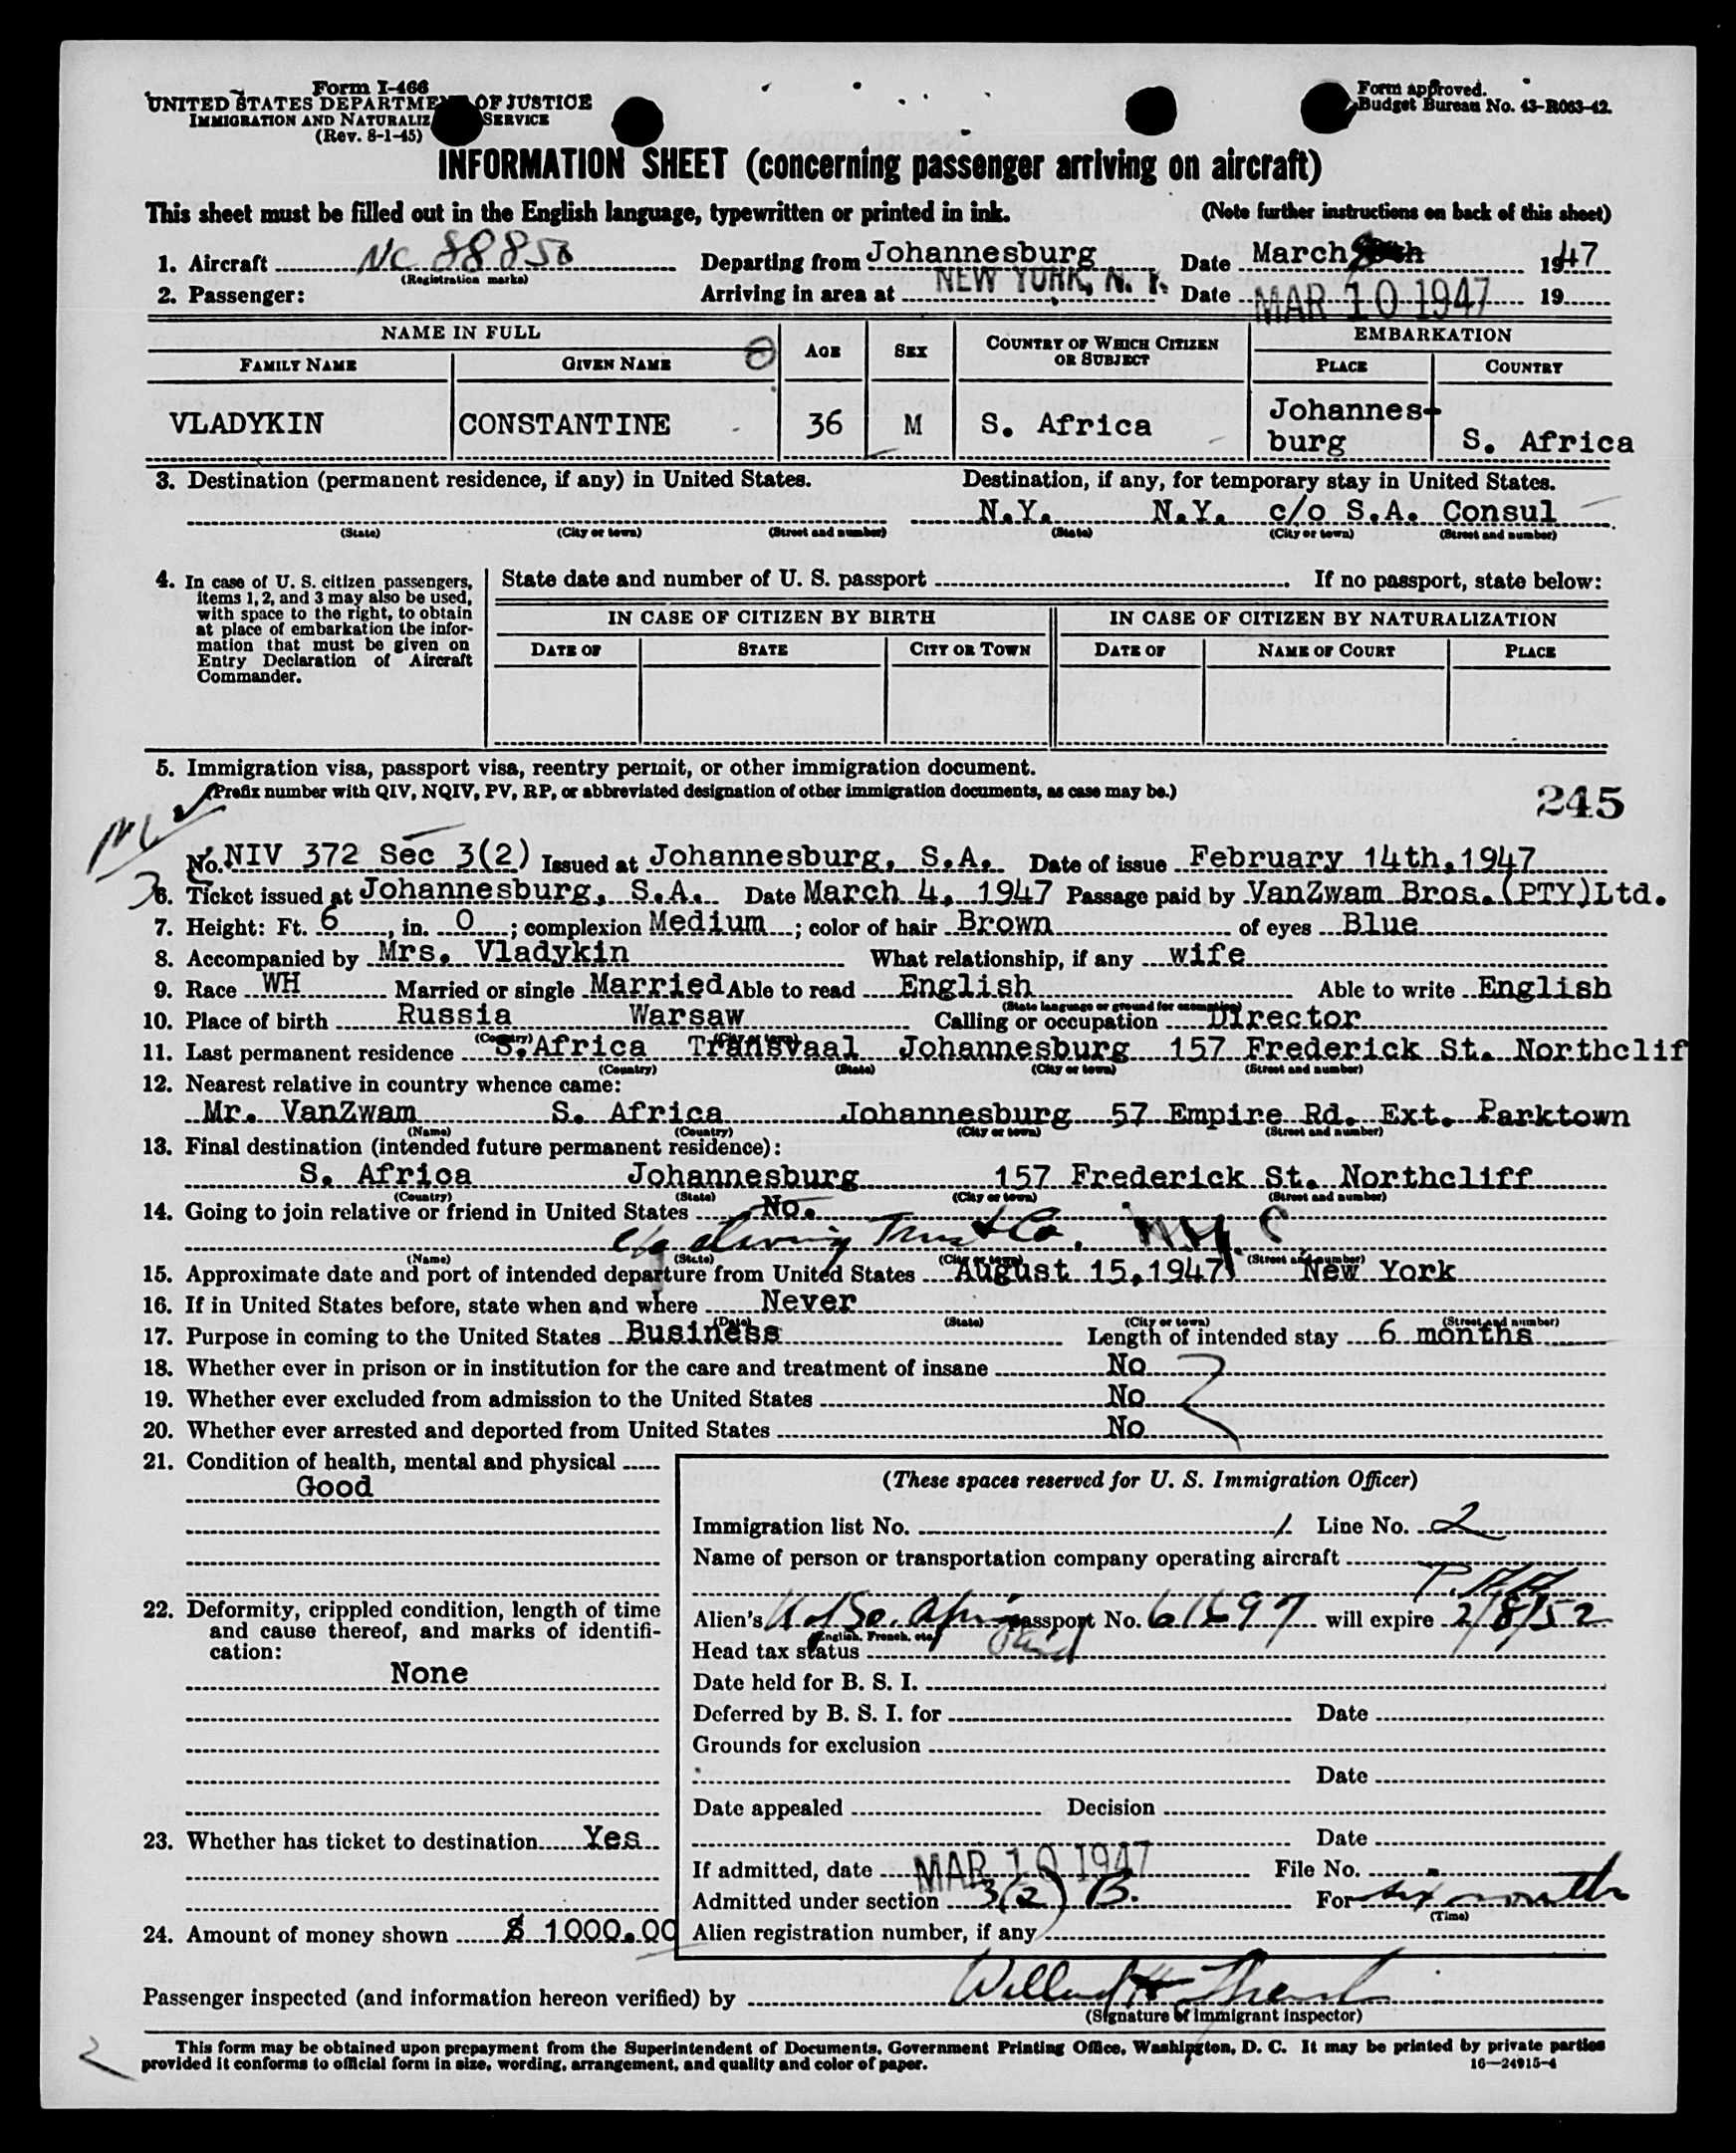 Form I-466
UNITED STATES DEPARTMENT OF JUSTICE
IMMIGRATION AND NATURALIZ SERVICE
(Rev. 8-1-45)
Form approved.
Budget Bureau No. 43-R063-42.
INFORMATION SHEET (concerning passenger arriving on aircraft)
This sheet must be filled out in the English language, typewritten or printed in ink. (Note further instructions on back of this sheet)
1. Aircraft NC 88850 Departing from Johannesburg Date March 1947
(Registration marks)
2. Passenger: Arriving in area at NEW YORK, N. Y. Date MAR 10 1947 19
NAME IN FULL AGE SEX COUNTRY OF WHICH CITIZEN OR SUBJECT EMBARKATION
FAMILY NAME GIVEN NAME PLACE COUNTRY
VLADYKIN CONSTANTINE 36 M S. Africa Johannes-
burg S. Africa
3. Destination (permanent residence, if any) in United States. Destination, if any, for temporary stay in United States.
N.Y. N.Y. c/o S.A. Consul
(State) (City or town) (Street and number) (State) (City or town) (Street and number)
4. In case of U. S. citizen passengers, items 1, 2, and 3 may also be used, with space to the right, to obtain at place of embarkation the information that must be given on Entry Declaration of Aircraft Commander.
State date and number of U. S. passport If no passport, state below:
IN CASE OF CITIZEN BY BIRTH IN CASE OF CITIZEN BY NATURALIZATION
DATE OF STATE CITY OR TOWN DATE OF NAME OF COURT PLACE
5. Immigration visa, passport visa, reentry permit, or other immigration document.
(Prefix number with QIV, NQIV, PV, RP, or abbreviated designation of other immigration documents, as case may be.)
245
No. NIV 372 Sec 3(2) Issued at Johannesburg, S.A. Date of issue February 14th, 1947
6. Ticket issued at Johannesburg, S.A. Date March 4, 1947 Passage paid by VanZwam Bros. (PTY)Ltd.
7. Height: Ft. 6, in. 0; complexion Medium; color of hair Brown of eyes Blue
8. Accompanied by Mrs. Vladykin What relationship, if any wife
9. Race WH Married or single Married Able to read English Able to write English
(State language or ground for exemption)
10. Place of birth Russia Warsaw Calling or occupation Director
(Country) (City or town)
11. Last permanent residence S. Africa Transvaal Johannesburg 157 Frederick St. Northclif
(Country) (State) (City or town) (Street and number)
12. Nearest relative in country whence came:
Mr. VanZwam S. Africa Johannesburg 57 Empire Rd. Ext. Parktown
(Name) (Country) (City or town) (Street and number)
13. Final destination (intended future permanent residence):
S. Africa Johannesburg 157 Frederick St. Northcliff
(Country) (State) (City or town) (Street and number)
14. Going to join relative or friend in United States No.
c/o Irving Trust Co. N.Y.C
(Name) (State) (City or town) (Street and number)
15. Approximate date and port of intended departure from United States August 15, 1947 New York
16. If in United States before, state when and where Never
(Date) (State) (City or town) (Street and number)
17. Purpose in coming to the United States Business Length of intended stay 6 months
18. Whether ever in prison or in institution for the care and treatment of insane No
19. Whether ever excluded from admission to the United States No
20. Whether ever arrested and deported from United States No
21. Condition of health, mental and physical
Good
22. Deformity, crippled condition, length of time and cause thereof, and marks of identification:
None
23. Whether has ticket to destination Yes
24. Amount of money shown $ 1000.00
(These spaces reserved for U. S. Immigration Officer)
Immigration list No. 1 Line No. 2
Name of person or transportation company operating aircraft
P.A.A.
Alien's U of So. Afri passport No. 61697 will expire 2/8/52
(English, French, etc.)
Head tax status Paid
Date held for B. S. I.
Deferred by B. S. I. for Date
Grounds for exclusion
Date
Date appealed Decision
Date
If admitted, date MAR 10 1947 File No.
Admitted under section 3(2) B. For six months
(Time)
Alien registration number, if any
Passenger inspected (and information hereon verified) by
(Signature of immigrant inspector)
This form may be obtained upon prepayment from the Superintendent of Documents, Government Printing Office, Washington, D. C. It may be printed by private parties
provided it conforms to official form in size, wording, arrangement, and quality and color of paper. 16—24915-4